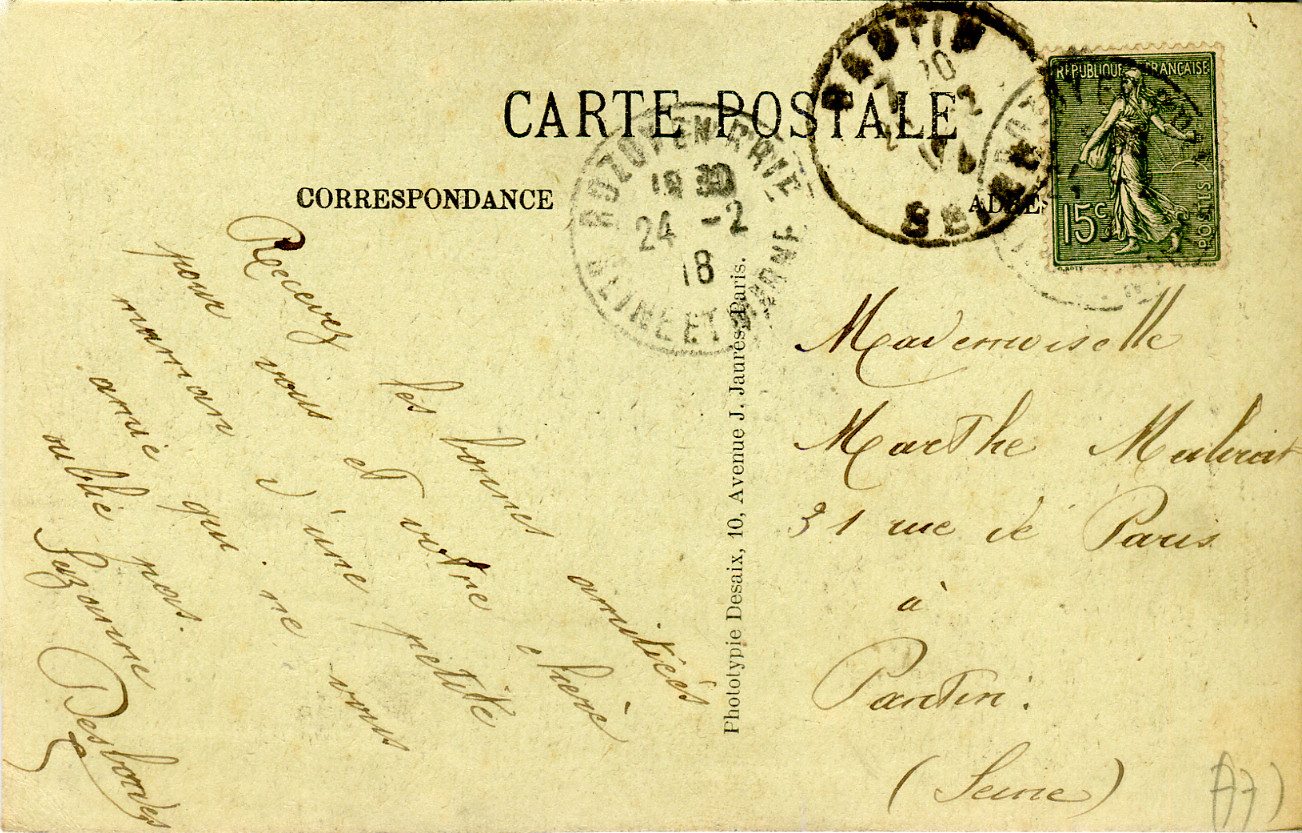 CARTE POSTALE
CORRESPONDANCE
Recevez les bonnes amitiées
pour vous et votre chère
maman d'une petite
amie qui ne vous
oublie pas.
Suzanne
Desbordes
ROZOY EN BRIE
18 30
24 -2
18
SEINE ET MARNE
PANTIN
SEINE
RÉPUBLIQUE FRANÇAISE
15c
POSTES
Phototypie Desaix, 10, Avenue J. Jaurès, Paris.
Mademoiselle
Marthe
31 rue de Paris
à
Pantin.
(Seine)